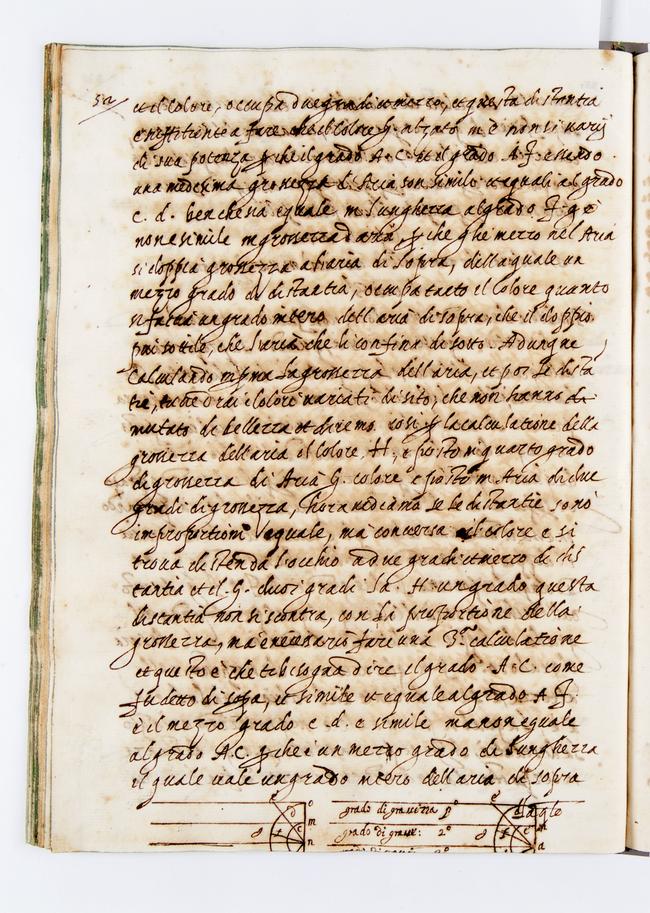 52
et il Colore, occupa due gradi et mezzo, et questa distantia
e restituente a fare che il colore G. alzato m è non si varij
di sua potenza p che il grado A.C. et il grado A f. essendo
una medesima grossezza d'Aria son simile et equali al grado
c. d. benche sia equale in lunghezza al grado f. g è
non e simile in grossezza d aria, p che g he mezzo nel Aria
si doppia grossezza al aria di sopra, della quale un
mezzo grado di distantia, occupa tanto il Colore quanto
si faccia un grado intero dell aria di sopra, che il doppio
piu sottile, che l aria che li confina di sotto. Adunque
Calculando prima la grossezza dell aria, et poi le dista
tie, tutte d rai e colori variati di sito, che non hanno
mutato di bellezza et diremo cosi p la calculatione della
grossezza dell aria el Colore, H, e posto in quarto grado
di grossezza di Aria G. colore e posto in Aria di due
gradi di grossezza, hora vediamo se le distantie sono
in proportioni equale, ma conversa il colore e si
trova distante da l occhio a due gradi et mezzo di dis
tantia et il G. duoi gradi la H. un grado questa
distantia non si scontra, con la proportione della
grossezza, ma è necessario fare una 3ª calculatione
et questo è che ti bisogna dire il grado A.C. come
fu detto di sopra, e simile et equale al grado A f.
e il mezzo grado c. d. e simile ma non equale
al grado A.C. p che è un mezzo grado di lunghezza
il quale vale un grado intero dell aria di sopra
e d o m n g f c
grado di gravezza 1º
grado di grave: 2º
e g f c m a